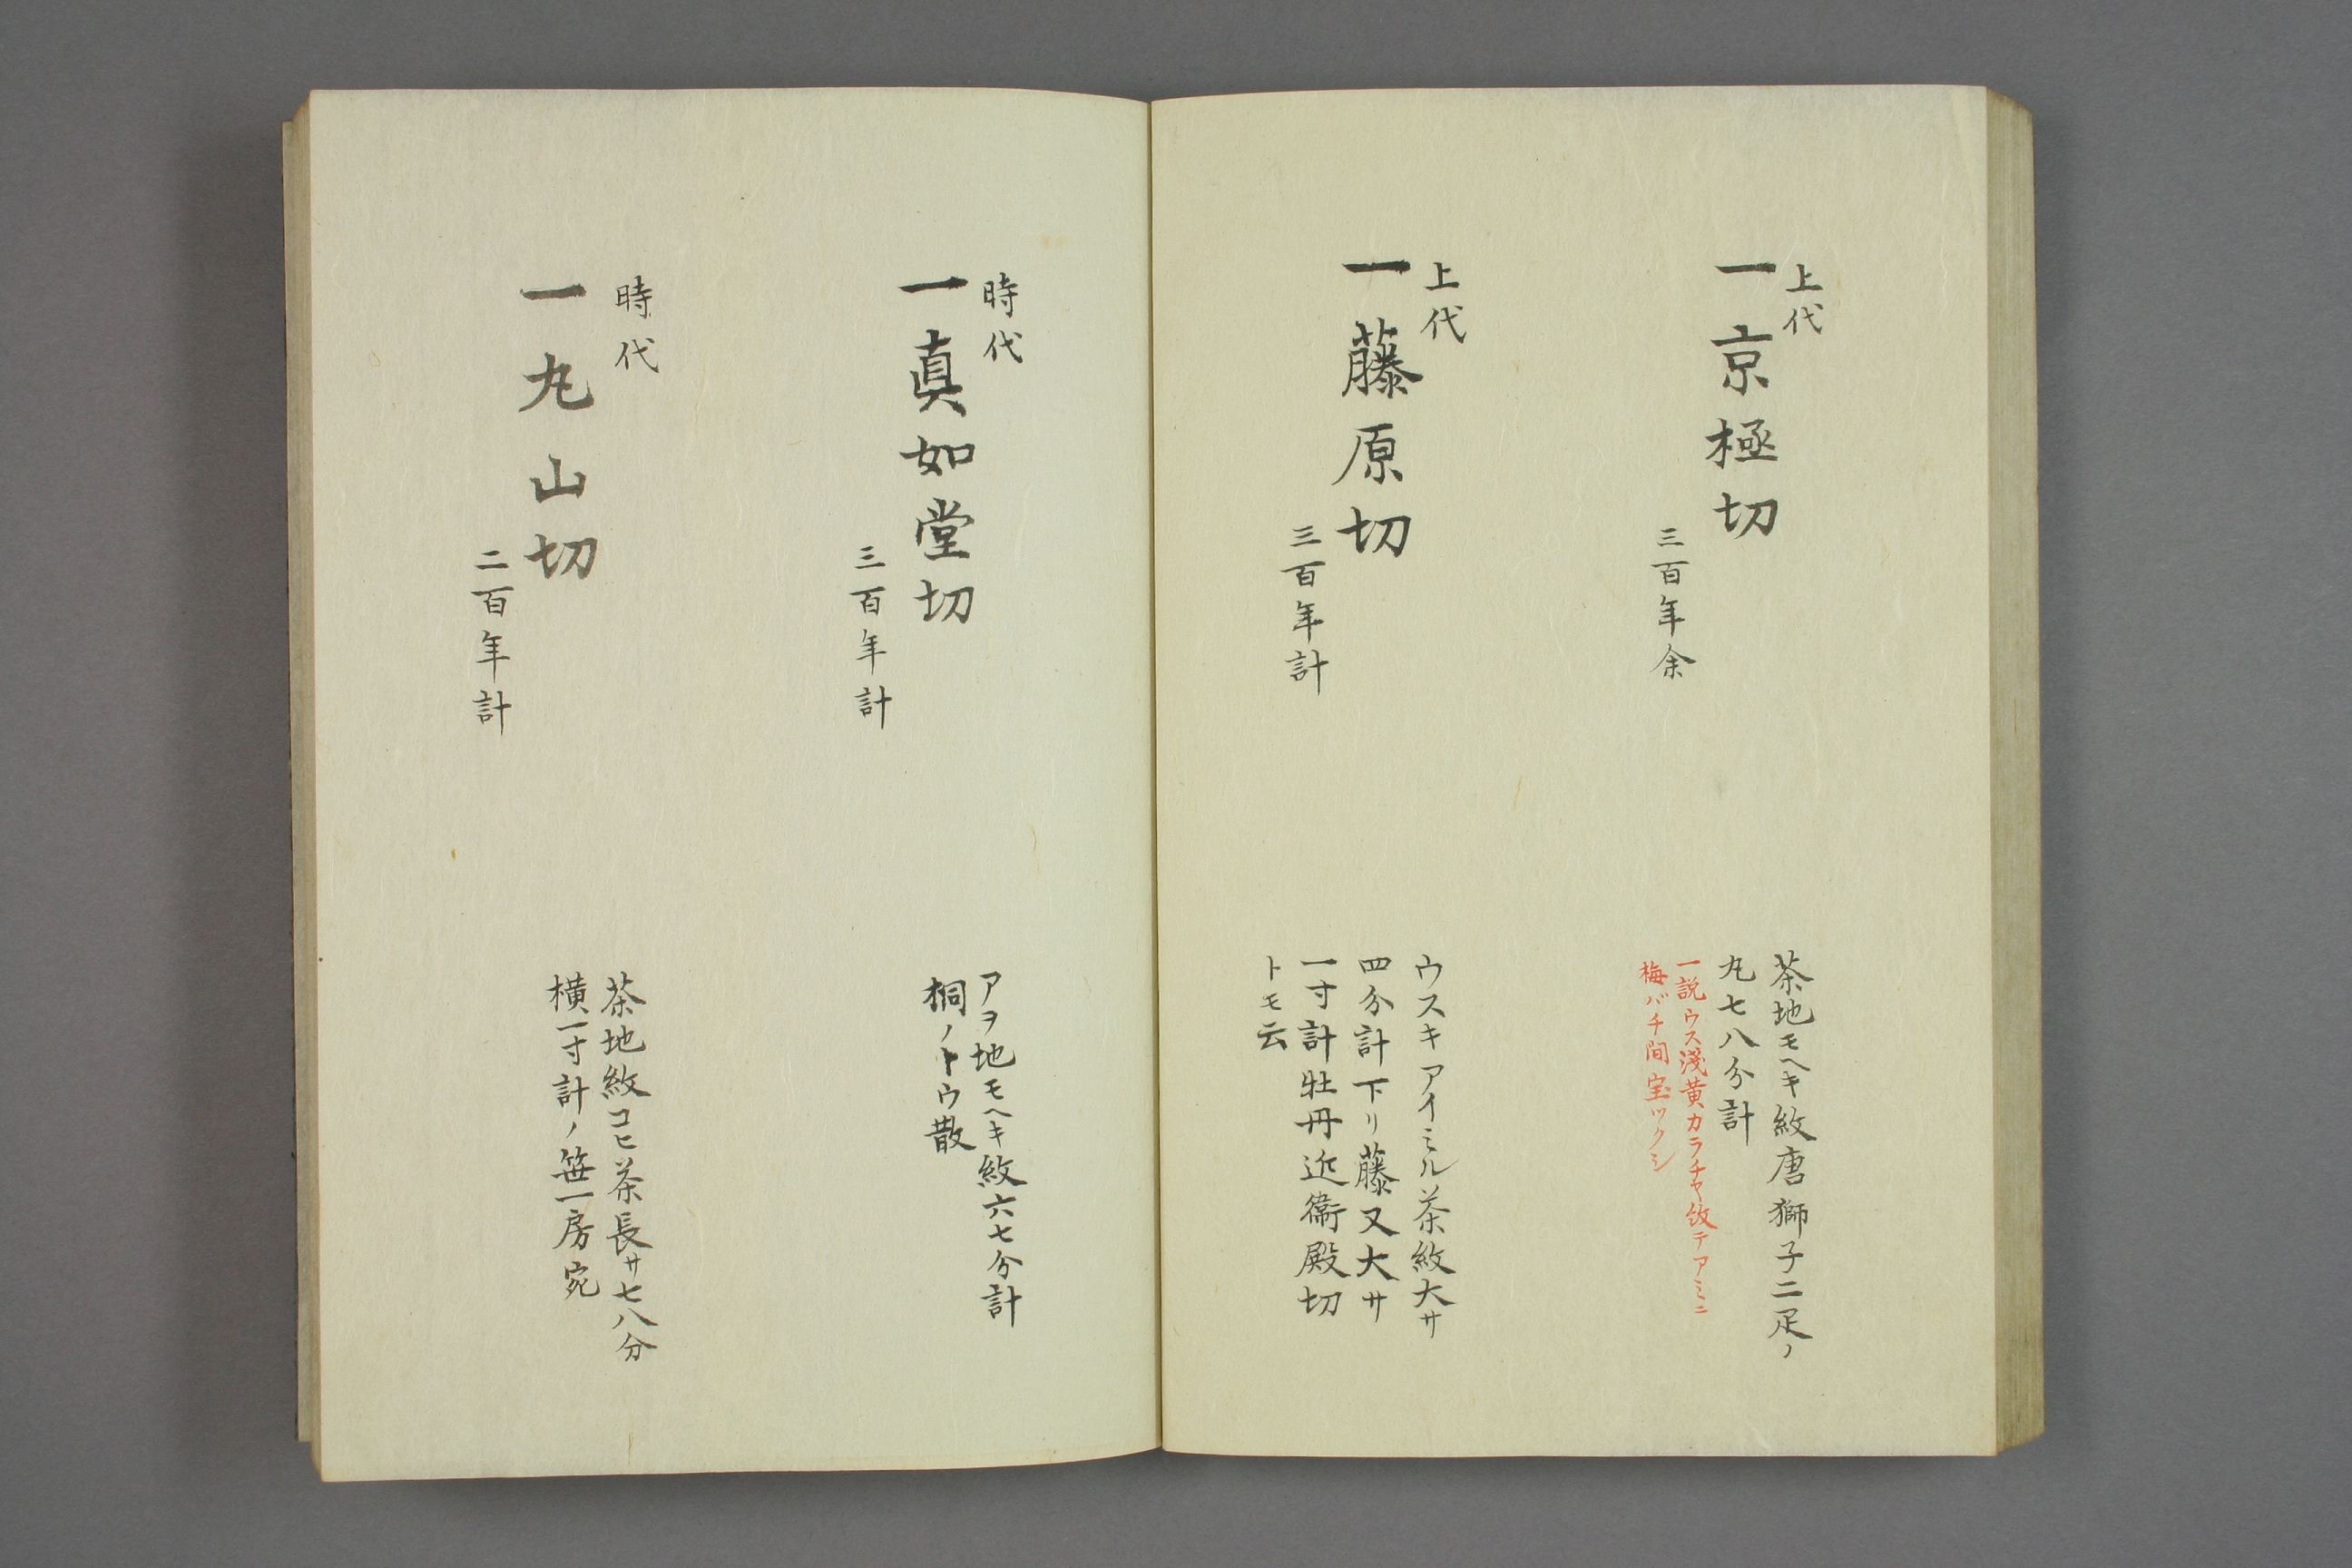 上代
一京極切
三百年余
茶地モヘキ紋唐獅子二疋ノ
丸七八分計
一説ウス淺黄カラチヤ紋テアミニ
梅バチ間宝ツクシ
上代
一藤原切
三百年計
ウスキアイミル茶紋大サ
四分計下リ藤又大サ
一寸計牡丹近衞殿切
トモ云
時代
一真如堂切
三百年計
アヲ地モヘキ紋六七分計
桐ノトウ散
時代
一丸山切
二百年計
茶地紋コヒ茶長サ七八分
横一寸計ノ笹一房宛